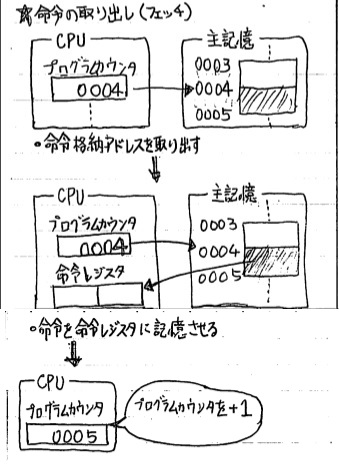 ☆命令の取り出し(フェッチ)
CPU
主記憶
プログラムカウンタ
0004
0003
0004
0005
・命令格納アドレスを取り出す
CPU
主記憶
プログラムカウンタ
0004
命令レジスタ
0003
0004
0005
・命令を命令レジスタに記憶させる
CPU
プログラムカウンタ
0005
プログラムカウンタを+1